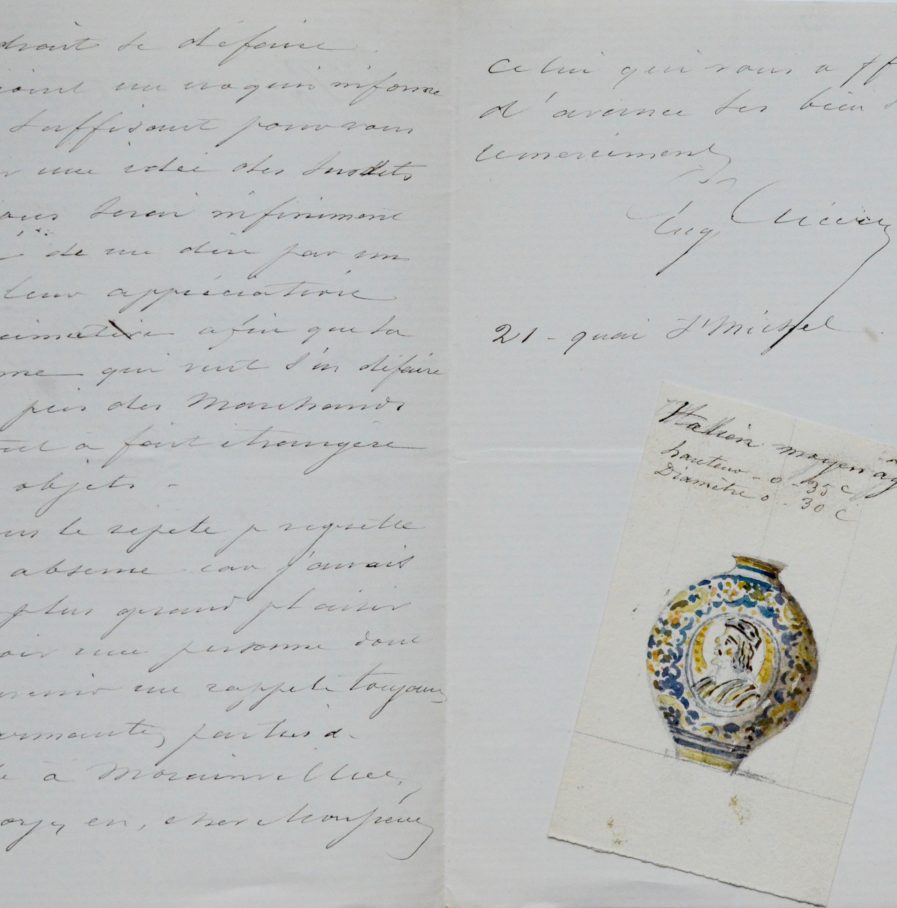 droit se défaire
joint un croquis informe
suffisant pour vous
une idée des susdits
vous serai infiniment
de me dire par un
leur appréciation
afin que la
qui veut s'en défaire
pris des Marchands
tout à fait étrangère
objets -
le répète je regrette
absence car j'aurais
plus grand plaisir
voir une personne dont
me rappele toujours
charmantes parties d-
à Morainvilliers
en, cher Monsieur
celui qui vous a off
d'avance ses bien s
remerciments
Eug
21 - quai St Michel
Italien moyen ag
hauteur - 0 - 35 c
Diamètre 0 - 30 c